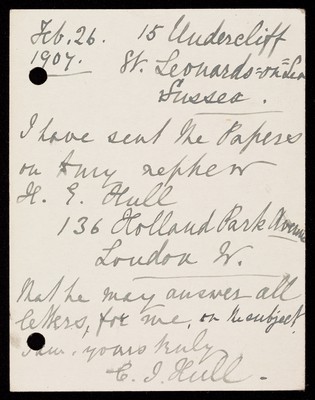 Feb. 26. 15 Undercliff
1907. St. Leonards=on=Sea
Sussex.
I have sent the Papers
on to my nephew
H. E. Hull
136 Holland Park Avenue
London W.
that he may answer all
letters, for me, on the subject.
I am, yours truly
C. I. Hull.